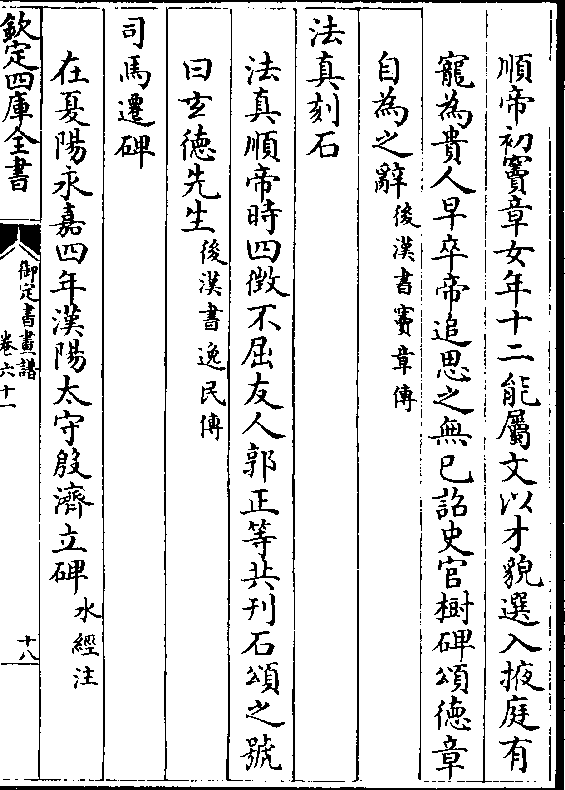 順帝初竇章女年十二能屬文以才貌選入掖庭有
寵為貴人早卒帝追思之無已詔史官樹碑頌德章
自為之辭後漢書竇章傳
法真刻石
法真順帝時四徴不屈友人郭正等共刊石頌之號
曰玄德先生後漢書逸民傳
司馬遷碑
在夏陽永嘉四年漢陽太守殷濟立碑水經注
欽定四庫全書
御定書畫譜
卷六十一
十八